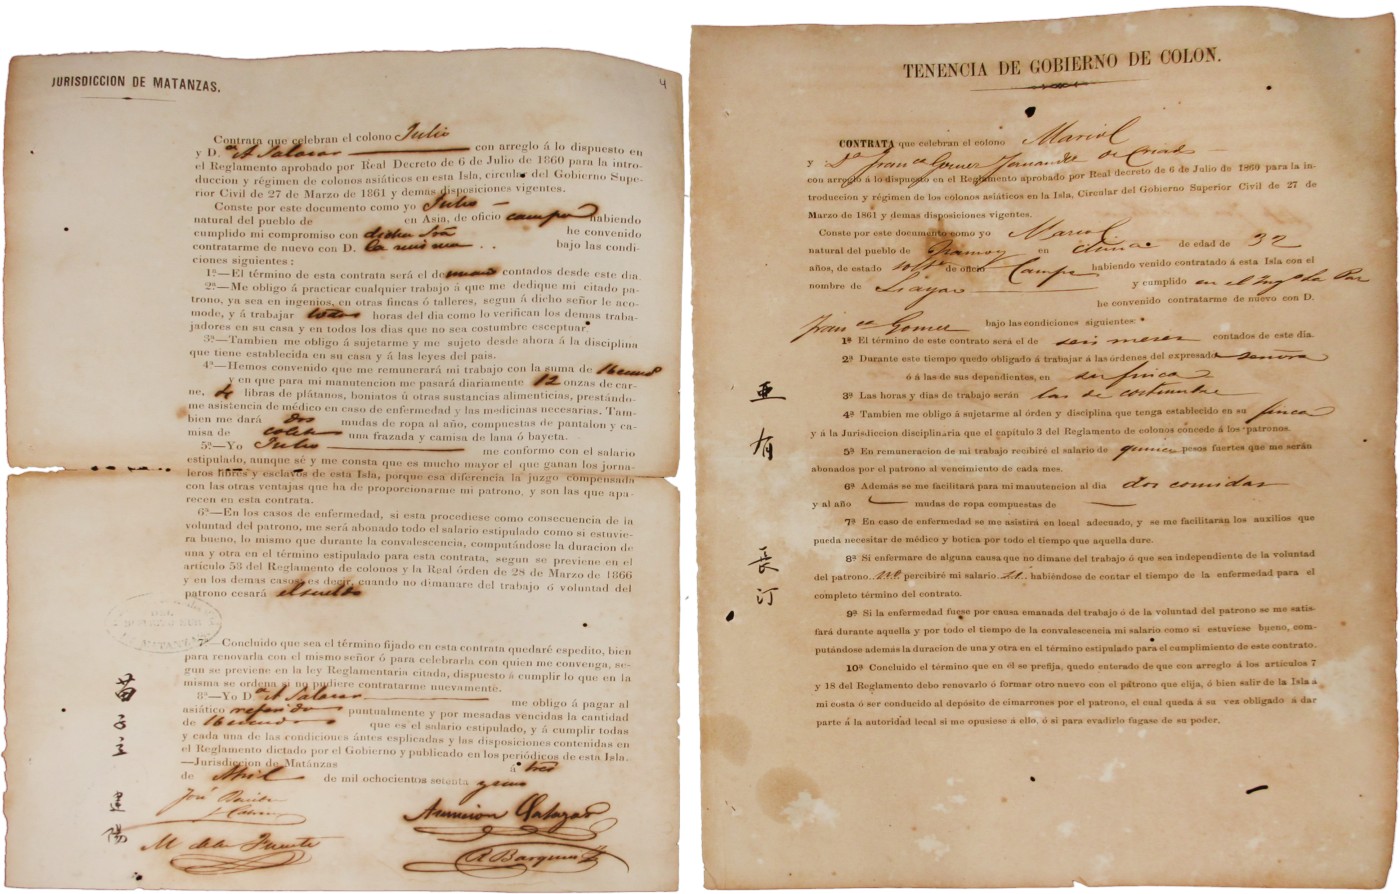 JURISDICCION DE MATANZAS.
4
Contrata que celebran el colono Julio
y D.ª A Salazar con arreglo á lo dispuesto en
el Reglamento aprobado por Real Decreto de 6 de Julio de 1860 para la intro-
duccion y régimen de colonos asiáticos en esta Isla, circular del Gobierno Supe-
rior Civil de 27 de Marzo de 1861 y demas disposiciones vigentes.
Conste por este documento como yo Julio
natural del pueblo de en Asia, de oficio campo habiendo
cumplido mi compromiso con dicha Sra he convenido
contratarme de nuevo con D. la misma bajo las condi-
ciones siguientes:
1ª—El término de esta contrata será el de un año contados desde este dia.
2ª—Me obligo á practicar cualquier trabajo á que me dedique mi citado pa-
trono, ya sea en ingenios, en otras fincas ó talleres, segun á dicho señor le aco-
mode, y á trabajar todas horas del dia como lo verifican los demas traba-
jadores en su casa y en todos los dias que no sea costumbre esceptuar.
3ª—Tambien me obligo á sujetarme y me sujeto desde ahora á la disciplina
que tiene establecida en su casa y á las leyes del pais.
4ª—Hemos convenido que me remunerará mi trabajo con la suma de 16 escudos
y en que para mi manutencion me pasará diariamente 12 onzas de car-
ne, 4 libras de plátanos, boniatos ú otras sustancias alimenticias, prestándo-
me asistencia de médico en caso de enfermedad y las medicinas necesarias. Tam-
bien me dará dos mudas de ropa al año, compuestas de pantalon y ca-
misa de coleta una frazada y camisa de lana ó bayeta.
5ª—Yo Julio me conformo con el salario
estipulado, aunque sé y me consta que es mucho mayor el que ganan los jorna-
leros libres y esclavos de esta Isla, porque esa diferencia la juzgo compensada
con las otras ventajas que ha de proporcionarme mi patrono, y son las que apa-
recen en esta contrata.
6ª—En los casos de enfermedad, si esta procediese como consecuencia de la
voluntad del patrono, me será abonado todo el salario estipulado como si estuvie-
ra bueno, lo mismo que durante la convalescencia, computándose la duracion de
una y otra en el término estipulado para esta contrata, segun se previene en el
artículo 53 del Reglamento de colonos y la Real órden de 28 de Marzo de 1866
y en los demas casos, es decir, cuando no dimanare del trabajo ó voluntad del
patrono cesará el sueldo
7ª—Concluido que sea el término fijado en esta contrata quedaré espedito, bien
para renovarla con el mismo señor ó para celebrarla con quien me convenga, se-
gun se previene en la ley Reglamentaria citada, dispuesto á cumplir lo que en la
misma se ordena si no pudiere contratarme nuevamente.
8ª—Yo D.ª A Salazar me obligo á pagar al
asiático referido puntualmente y por mesadas vencidas la cantidad
de 16 escudos que es el salario estipulado, y á cumplir todas
y cada una de las condiciones ántes esplicadas y las disposiciones contenidas en
el Reglamento dictado por el Gobierno y publicado en los periódicos de esta Isla.
—Jurisdiccion de Matánzas á tres
de Abril de mil ochocientos setenta y uno
José
Asuncion Salazar
M de la Fuente
TENENCIA DE GOBIERNO DE COLON.
CONTRATA que celebran el colono Marcial
y Dª Franca Gomez Fernandez de Criado
con arreglo á lo dispuesto en el Reglamento aprobado por Real decreto de 6 de Julio de 1860 para la in-
troduccion y régimen de los colonos asiáticos en la Isla, Circular del Gobierno Superior Civil de 27 de
Marzo de 1861 y demas disposiciones vigentes.
Conste por este documento como yo Marcial
natural del pueblo de en China de edad de 32
años, de estado solto de oficio Campo habiendo venido contratado á esta Isla con el
nombre de y cumplido en el Ingo La Paz
he convenido contratarme de nuevo con D.
Franca Gomez bajo las condiciones siguientes:
1ª El término de este contrato será el de seis meses contados de este dia.
2ª Durante este tiempo quedo obligado á trabajar á las órdenes del expresado señora
ó á las de sus dependientes, en su finca
3ª Las horas y dias de trabajo serán las de costumbre
4ª Tambien me obligo á sujetarme al órden y disciplina que tenga establecido en su finca
y á la Jurisdiccion disciplinaria que el capítulo 3 del Reglamento de colonos concede á los patronos.
5ª En remuneracion de mi trabajo recibiré el salario de quince pesos fuertes que me serán
abonados por el patrono al vencimiento de cada mes.
6ª Además se me facilitará para mi manutencion al dia dos comidas
y al año mudas de ropa compuestas de
7ª En caso de enfermedad se me asistirá en local adecuado, y se me facilitarán los auxilios que
pueda necesitar de médico y botica por todo el tiempo que aquella dure.
8ª Si enfermare de alguna causa que no dimane del trabajo ó que sea independiente de la voluntad
del patrono percibiré mi salario habiéndose de contar el tiempo de la enfermedad para el
completo término del contrato.
9ª Si la enfermedad fuese por causa emanada del trabajo ó de la voluntad del patrono se me satis-
fará durante aquella y por todo el tiempo de la convalescencia mi salario como si estuviese bueno, com-
putándose además la duracion de una y otra en el término estipulado para el cumplimiento de este contrato.
10ª Concluido el término que en él se prefija, quedo enterado de que con arreglo á los artículos 7
y 18 del Reglamento debo renovarlo ó formar otro nuevo con el patrono que elija, ó bien salir de la Isla á
mi costa ó ser conducido al depósito de cimarrones por el patrono, el cual queda á su vez obligado a dar
parte á la autoridad local si me opusiese á ello, ó si para evadirlo fugase de su poder.
亚
有
長
汀